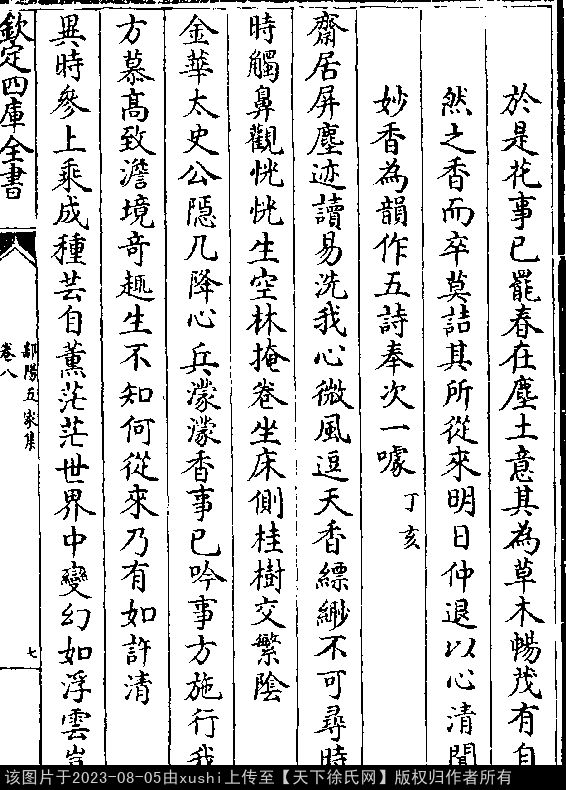 於是花事已罷春在塵土意其為草木暢茂有自
然之香而卒莫詰其所從來明日仲退以心清聞
妙香為韻作五詩奉次一噱丁亥
齋居屏塵迹讀易洗我心微風逗天香縹緲不可尋時
時觸鼻觀恍恍生空林掩卷坐床側桂樹交繁陰
金華太史公隱几降心兵濛濛香事已吟事方施行我
方慕高致澹境奇趣生不知何從來乃有如許清
異時參上乘成種芸自薰茫茫世界中變幻如浮雲豈
欽定四庫全書
鄱陽五家集
卷八
七
该图片于2023-08-05由xushi上传至【天下徐氏网】版权归作者所有